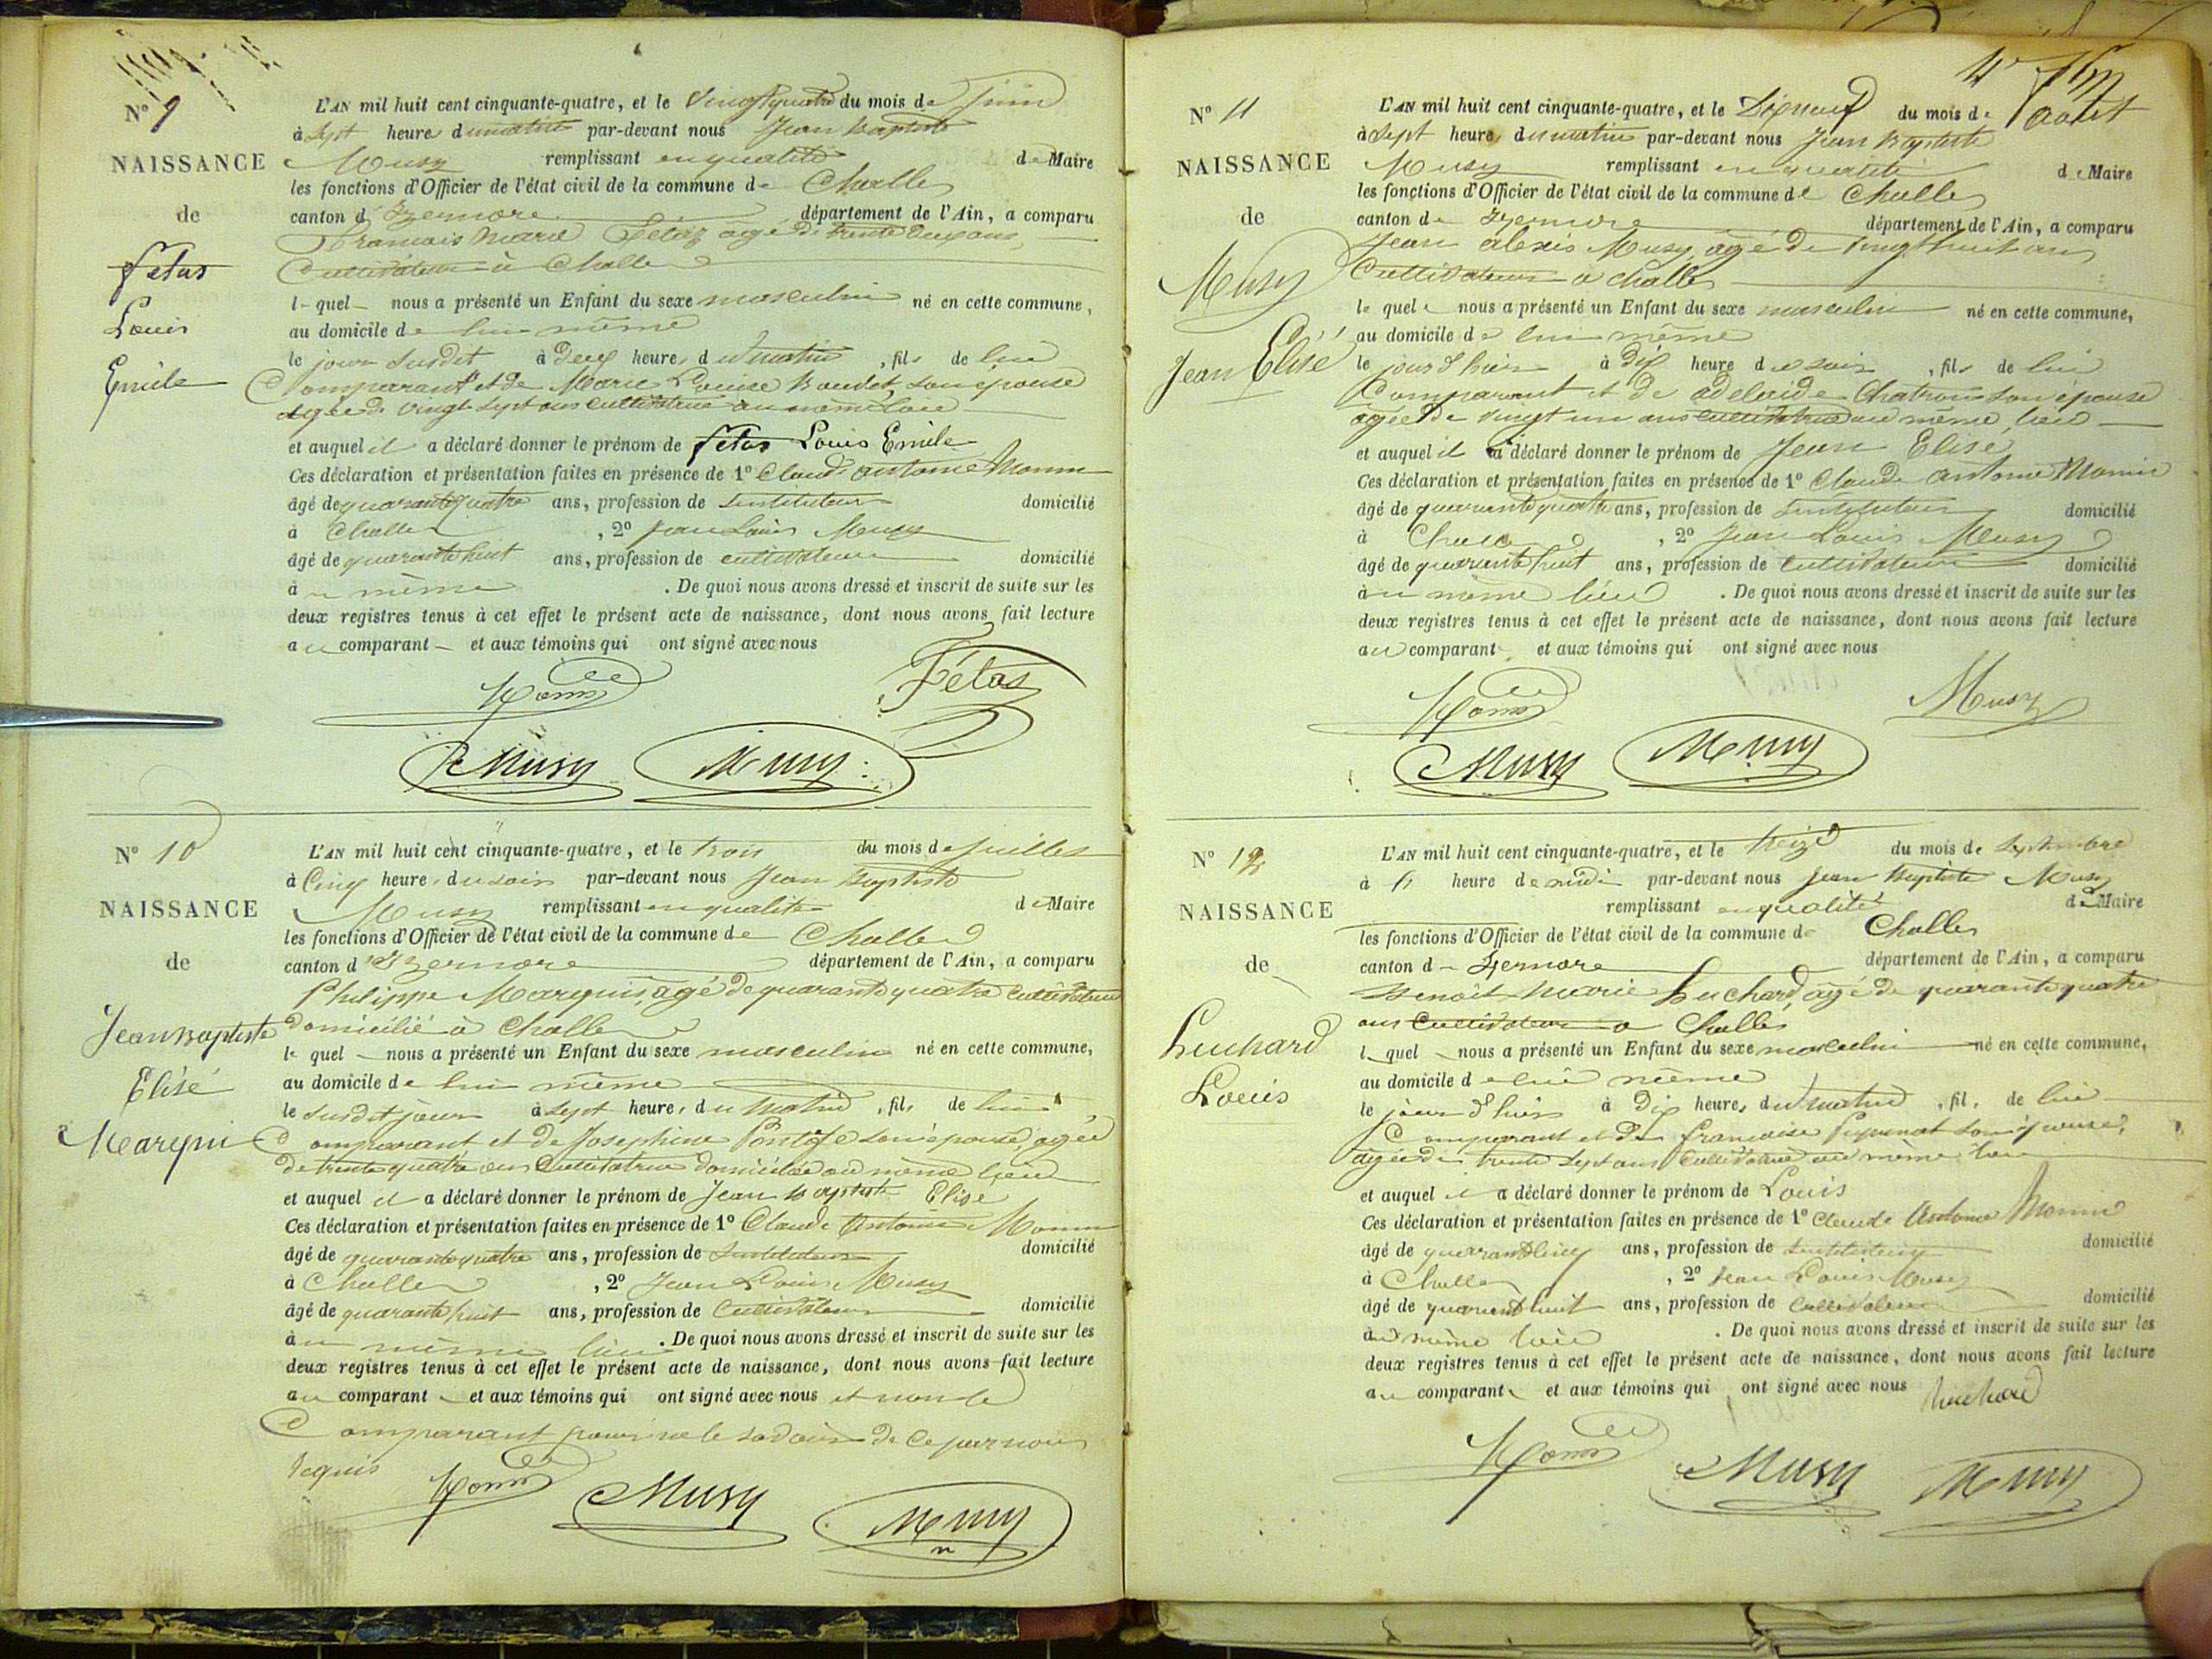 N° 9
NAISSANCE
de
fetas
Louis
Emile
L'AN mil huit cent cinquante-quatre, et le vingt quatre du mois de juin
à sept heures du matin par-devant nous Jean Baptiste
Musy remplissant en qualité de Maire
les fonctions d'Officier de l'état civil de la commune de Challes
canton d'Izernore département de l'Ain, a comparu
François Marie Fétaz agé de trente deux ans,
Cultivateur à Challe
lequel nous a présenté un Enfant du sexe masculin né en cette commune,
au domicile de lui même
le jour susdit à deux heures du matin, fils de lui
Comparant et de Marie Louise Boudet son épouse
agée de vingt sept ans cultivatrice au même lieu
et auquel il a déclaré donner le prénom de fetas Louis Emile
Ces déclaration et présentation faites en présence de 1° Claude antoine Monin
âgé de quarante quatre ans, profession de Instituteur domicilié
à Challes, 2° Jean Louis Musy
âgé de quarante huit ans, profession de cultivateur domicilié
au même. De quoi nous avons dressé et inscrit de suite sur les
deux registres tenus à cet effet le présent acte de naissance, dont nous avons fait lecture
au comparant et aux témoins qui ont signé avec nous
Monin Fétas
Musy Musy
N° 10
NAISSANCE
de
Jean Baptiste
Elisé
Marquis
L'AN mil huit cent cinquante-quatre, et le trois du mois de juillet
à Cinq heures du soir par-devant nous Jean Baptiste
Musy remplissant en qualité de Maire
les fonctions d'Officier de l'état civil de la commune de Challes
canton d'Izernore département de l'Ain, a comparu
Philippe Marquis, agé de quarante quatre Cultivateur
domicilié à Challes
lequel nous a présenté un Enfant du sexe masculin né en cette commune,
au domicile de lui même
le susdit jour à sept heures du matin, fils de lui
Comparant et de Josephine son épouse, agée
de trente quatre ans Cultivatrice domiciliée au même lieu
et auquel il a déclaré donner le prénom de Jean Baptiste Elise
Ces déclaration et présentation faites en présence de 1° Claude Antoine Monin
âgé de quarante quatre ans, profession de Instituteur domicilié
à Challes, 2° Jean Louis Musy
âgé de quarante huit ans, profession de Cultivateur domicilié
au même lieu. De quoi nous avons dressé et inscrit de suite sur les
deux registres tenus à cet effet le présent acte de naissance, dont nous avons fait lecture
au comparant et aux témoins qui ont signé avec nous et non le
Comparant pour ne le savoir de ce par nous
requis
Monin Musy Musy
N° 11
NAISSANCE
de
Musy
Jean Elisé
L'AN mil huit cent cinquante-quatre, et le Dix neuf du mois de aout
à sept heures du matin par-devant nous Jean Baptiste
Musy remplissant en qualité de Maire
les fonctions d'Officier de l'état civil de la commune de Challes
canton de Izernore département de l'Ain, a comparu
Jean alexis Musy, agé de vingt huit ans
Cultivateur a challes
lequel nous a présenté un Enfant du sexe masculin né en cette commune,
au domicile de lui même
le jour d'hier à dix heure du soir, fils de lui
Comparant et de adelaide Chatron son épouse
agée de vingt un ans cultivatrice au même lieu
et auquel il a déclaré donner le prénom de Jean Elise
Ces déclaration et présentation faites en présence de 1° Claude antoine Monin
âgé de quarante quatre ans, profession de Instituteur domicilié
à Challes, 2° Jean Louis Musy
âgé de quarante huit ans, profession de Cultivateur domicilié
au même lieu. De quoi nous avons dressé et inscrit de suite sur les
deux registres tenus à cet effet le présent acte de naissance, dont nous avons fait lecture
au comparant et aux témoins qui ont signé avec nous
Monin Musy
Musy Musy
N° 12
NAISSANCE
de
Luchard
Louis
L'AN mil huit cent cinquante-quatre, et le treize du mois de Septembre
à heure de midi par-devant nous Jean Baptiste Musy
remplissant en qualité de Maire
les fonctions d'Officier de l'état civil de la commune de Challes
canton d'Izernore département de l'Ain, a comparu
Benoit Marie Luchard, agé de quarante quatre
ans Cultivateur a Challes
lequel nous a présenté un Enfant du sexe masculin né en cette commune,
au domicile de lui même
le jour d'hier à Dix heures du matin, fils de lui
Comparant et de francoise son épouse,
agée de trente sept ans Cultivatrice au même lieu
et auquel il a déclaré donner le prénom de Louis
Ces déclaration et présentation faites en présence de 1° Claude Antoine Monin
âgé de quarante cinq ans, profession de Instituteur domicilié
à Challes, 2° Jean Louis Musy
âgé de quarante huit ans, profession de Cultivateur domicilié
au même lieu. De quoi nous avons dressé et inscrit de suite sur les
deux registres tenus à cet effet le présent acte de naissance, dont nous avons fait lecture
au comparant et aux témoins qui ont signé avec nous Luchard
Monin Musy Musy